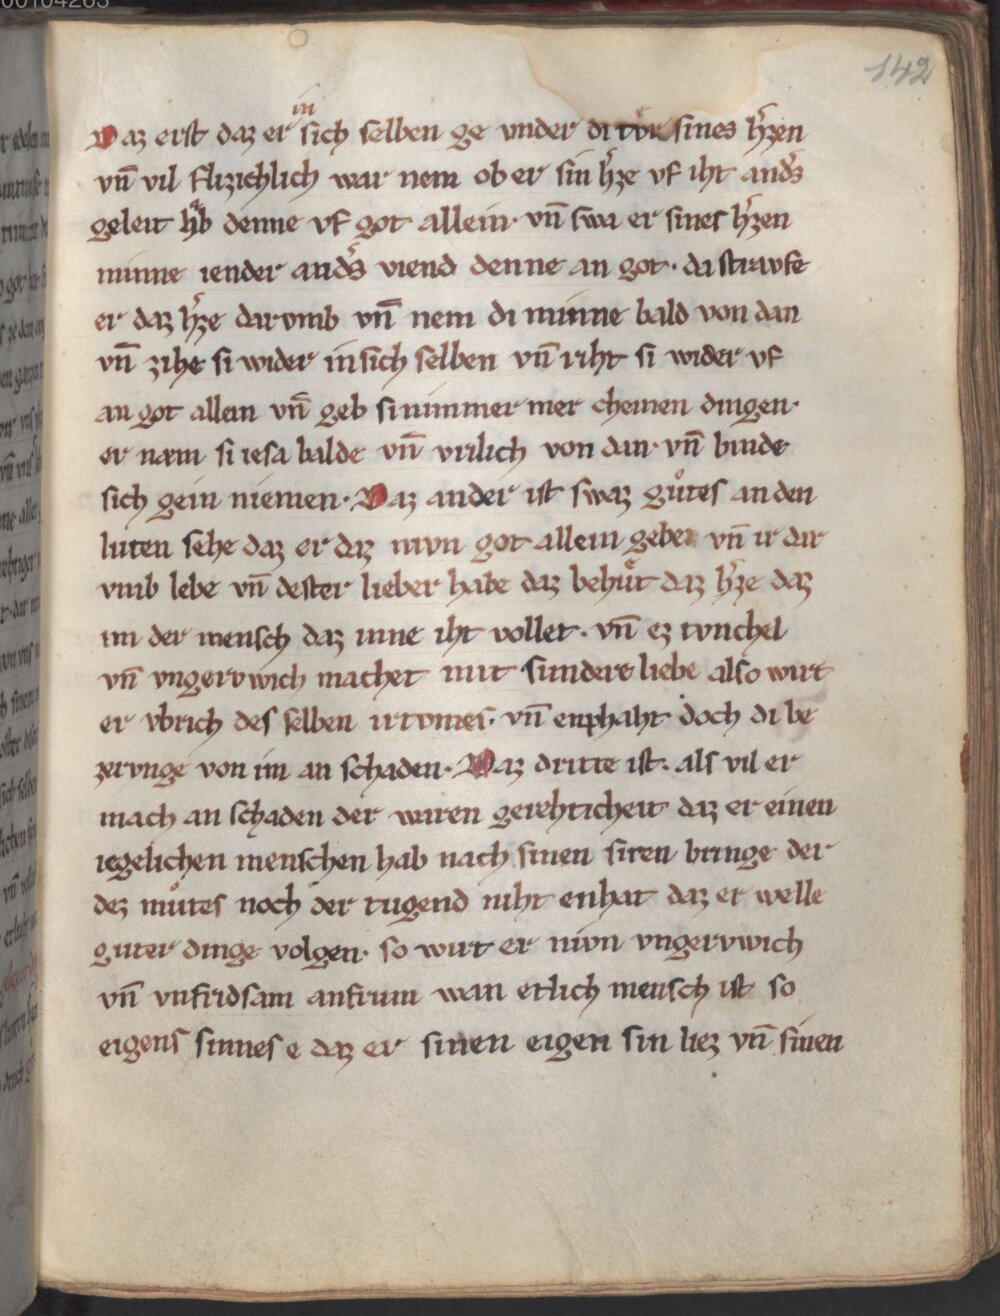 142
in
Daz erst daz er sich selben ge vnder di tv̊r sines h̾zen
vn̄ vil flizichlich war nem ob er sin h̾ze vf iht and̾s
geleit hab denne vf got allein· vn̄ swa er sines h̾zen
minne iender and̾s viend denne an got· da strawfe
er daz h̾ze darvmb vn̄ nem di minne bald von dan
vn̄ zihe si wider in sich selben vn̄ riht si wider vf
an got allein vn̄ geb si nimmer mer cheinen dingen·
er næm si iesa balde vn̄ vrilich von dan· vn̄ binde
sich gein niemen· Daz ander ist swaz gůtes an den
luten sehe daz er daz nivn got allein geber vn̄ ir dar
vmb lebe vn̄ dester lieber habe daz behůt daz h̾ze daz
im der mensch daz inne iht vollet· vn̄ ez tvnchel
vn̄ vngervwich machet mit sundere liebe also wirt
er vbrich des selben irtvmes· vn̄ enphaht doch di be
zervnge von im an schaden· Daz dritte ist· als vil er
mach an schaden der waren gerehticheit daz er einen
iegelichen menschen hab nach sinen siten bringe der
dez můtes noch der tugend niht enhat daz er welle
guter dinge volgen· so wirt er nivn vngervwich
vn̄ vnfridsam anfrum wan etlich mensch ist so
eigens sinnes e daz er sinen eigen sin liez vn̄ sinen